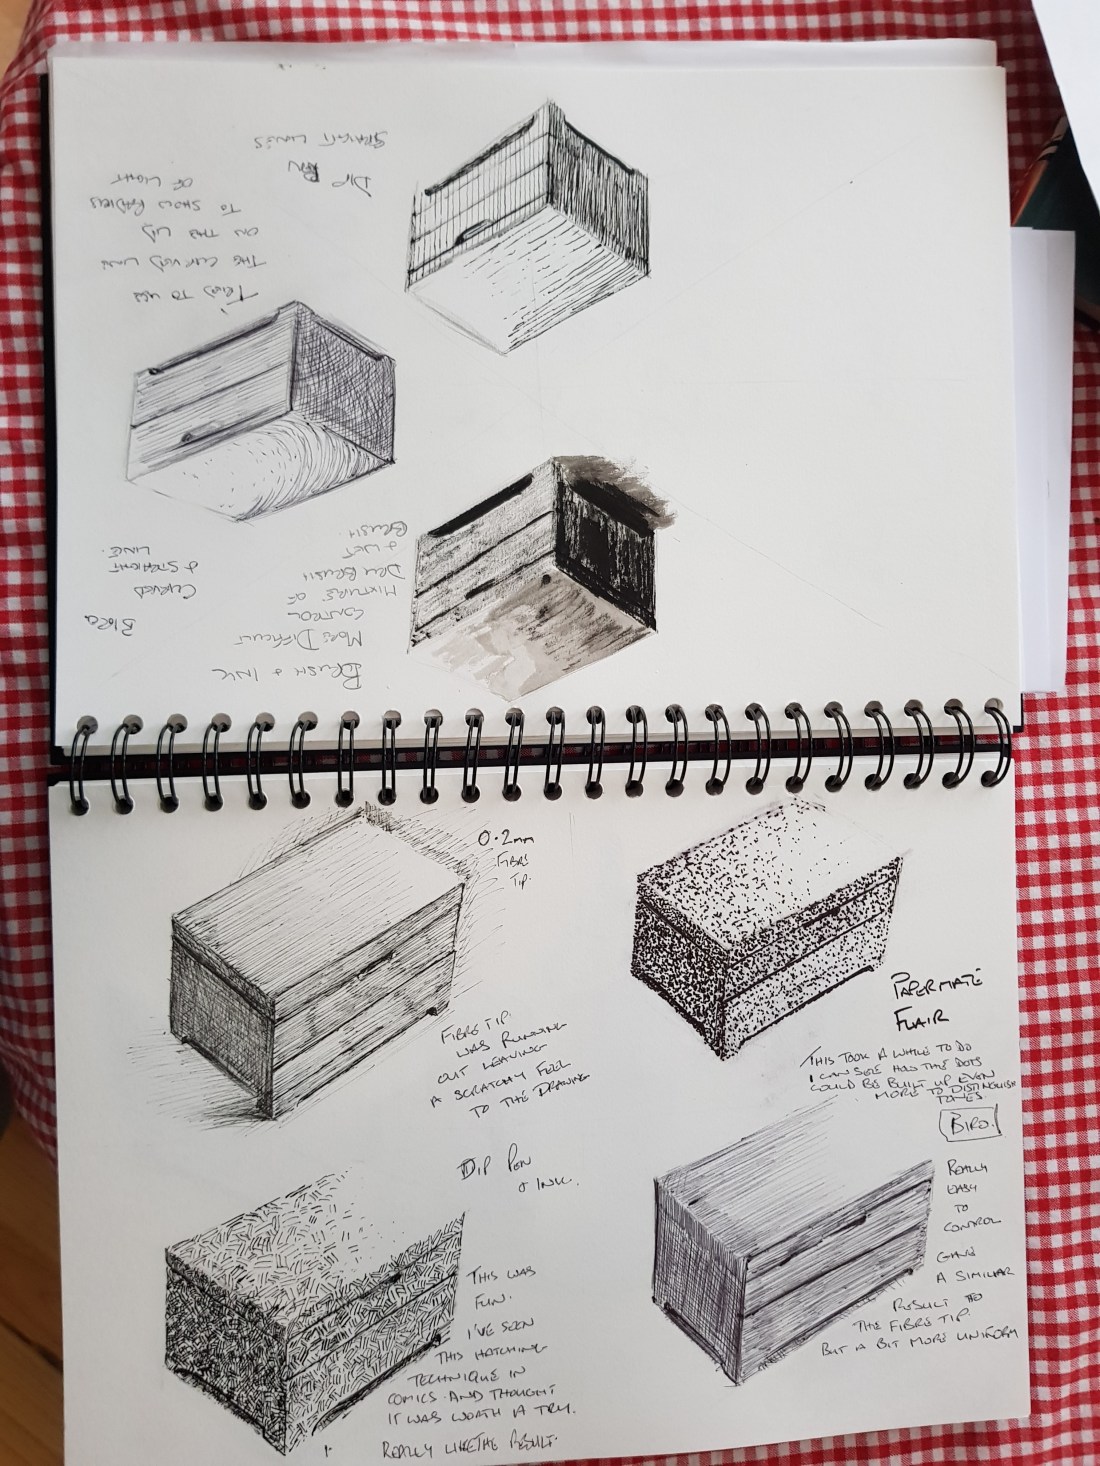 BRUSH + INK
MORE DIFFICULT
CONTROL
MIXTURE OF
DRY BRUSH
+ WET
BRUSH.
BIRO
CURVED
+ STRAIGHT
LINE.
TRIED TO USE
THE CURVED LINE
ON THE LID
TO SHOW
OF LIGHT
DIP PEN
STRAIGHT LINES
0.2mm
FIBRE
TIP.
FIBRE TIP.
WAS RUNNING
OUT LEAVING
A SCRATCHY FEEL
TO THE DRAWING
PAPERMATE
FLAIR
THIS TOOK A WHILE TO DO
I CAN SEE HOW THE DOTS
COULD BE BUILT UP EVEN
MORE TO DISTINGUISH
TONES.
DIP PEN
+ INK.
THIS WAS
FUN.
I'VE SEEN
THIS HATCHING
TECHNIQUE IN
COMICS AND THOUGHT
IT WAS WORTH A TRY.
REALLY LIKE THE RESULT.
BIRO.
REALLY
EASY
TO
CONTROL
GAVE
A SIMILAR
RESULT TO
THE FIBRE TIP.
BUT A BIT MORE UNIFORM